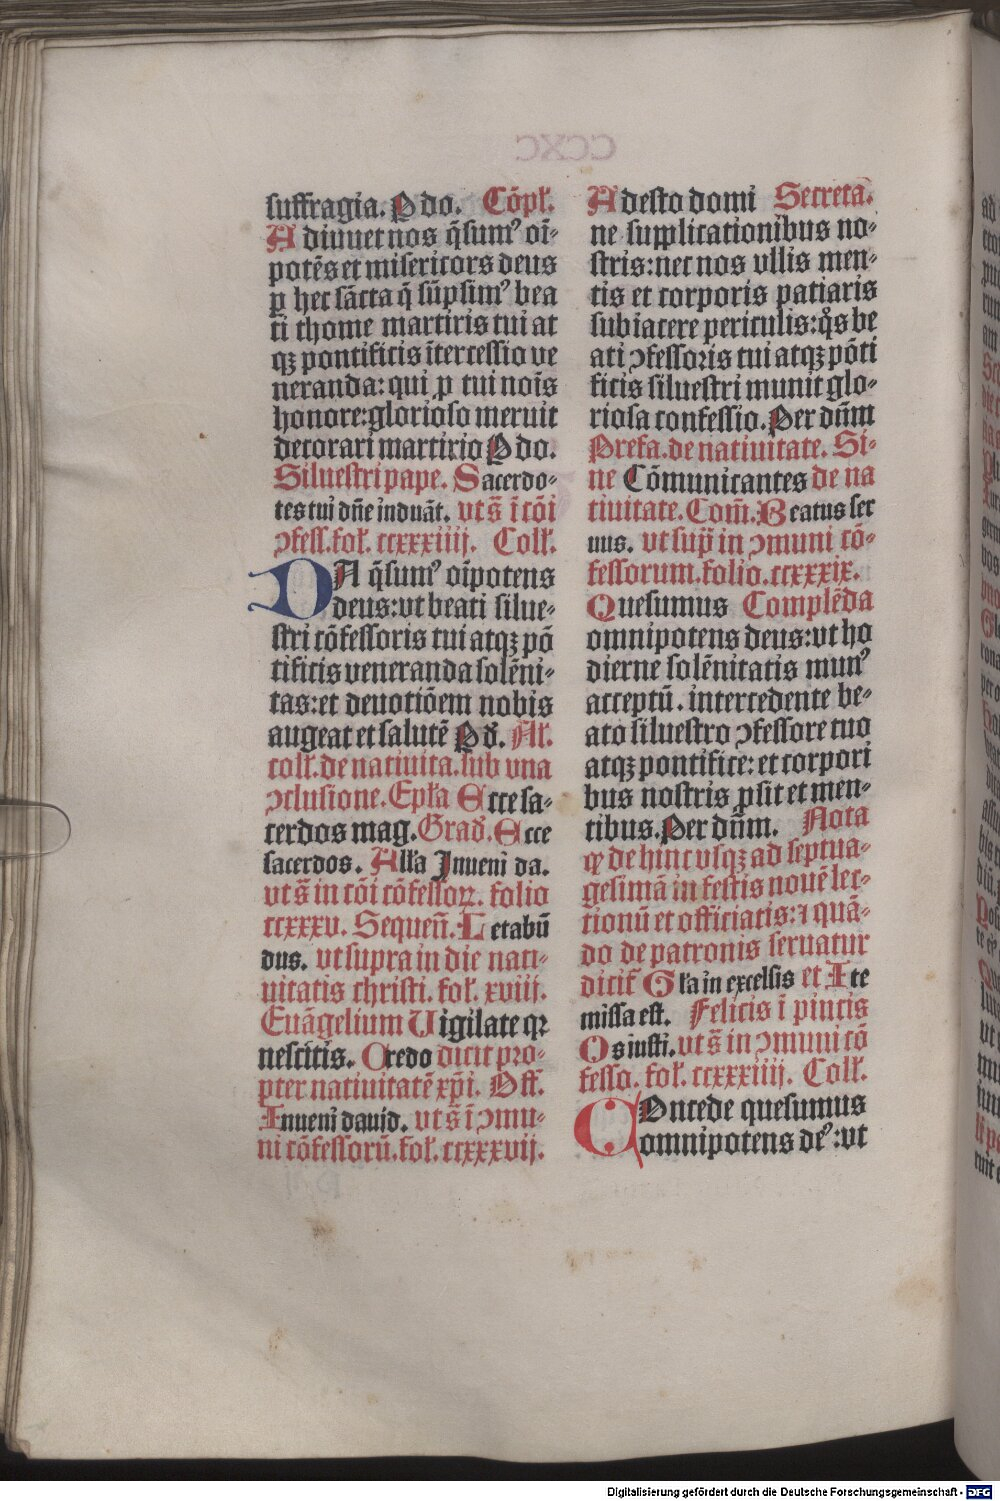 suffragia. P do. Cōpł.
Adiuuet nos q̄sumꝰ oī-
potēs et misericors deus
ꝑ hec sācta q̄ sūpsimꝰ bea
ti thome martiris tui at
qꝫ pontificis ītercessio ve
neranda: qui ꝓ tui noīs
honore: glorioso meruit
decorari martirio P do.
Siluestri pape. Sacerdo-
tes tui dñe induāt. vt s̄ ī cōi
ꝯfess. foł. ccxxxiiij. Coll.
DA q̄sumꝰ oīpotens
deus: vt beati silue-
stri cōfessoris tui atqꝫ pō
tificis veneranda solēni-
tas: et deuotiōem nobis
augeat et salutē P d. Al.
coll. de natiuita. sub vna
ꝯclusione. Epła Ecce sa-
cerdos mag. Grad. Ecce
sacerdos. Alla Inueni da.
vt s̄ in cōi cōfessoꝝ. folio
ccxxxv. Sequeñ. Letabū
dus. vt supra in die nati-
uitatis christi. foł. xviij.
Euāgelium Uigilate qꝛ
nescitis. Credo dicit pro-
pter natiuitatē xp̄i. Off.
Inueni dauid. vt s̄ ī ꝯmu-
ni cōfessorū. foł. ccxxxvij.
Adesto domi Secreta.
ne supplicationibus no-
stris: nec nos vllis men-
tis et corporis patiaris
subiacere periculis: q̄s be
ati ꝯfessoris tui atqꝫ pōti
ficis siluestri munit glo-
riosa confessio. Per dñm
Prefa. de natiuitate. Si-
ne Cōmunicantes de na
tiuitate. Com̄. Beatus ser
uus. vt sup̄ in ꝯmuni cō-
fessorum. folio. ccxxxix.
Quesumus Complēda
omnipotens deus: vt ho
dierne solēnitatis munꝰ
acceptū. intercedente be-
ato siluestro ꝯfessore tuo
atqꝫ pontifice: et corpori
bus nostris ꝓsit et men-
tibus. Per dñm. Nota
ꝙ de hinc vsqꝫ ad septua-
gesimā in festis nouē lec-
tionū et officiatis: ⁊ quā-
do de patronis seruatur
dicit̄ Gła in excelsis et Ite
missa est. Felicis ī pincis
Os iusti. vt s̄ in ꝯmuni cō
fesso. foł. ccxxxiiij. Coll.
COncede quesumus
omnipotens deꝰ: vt
Digitalisierung gefördert durch die Deutsche Forschungsgemeinschaft - DFG